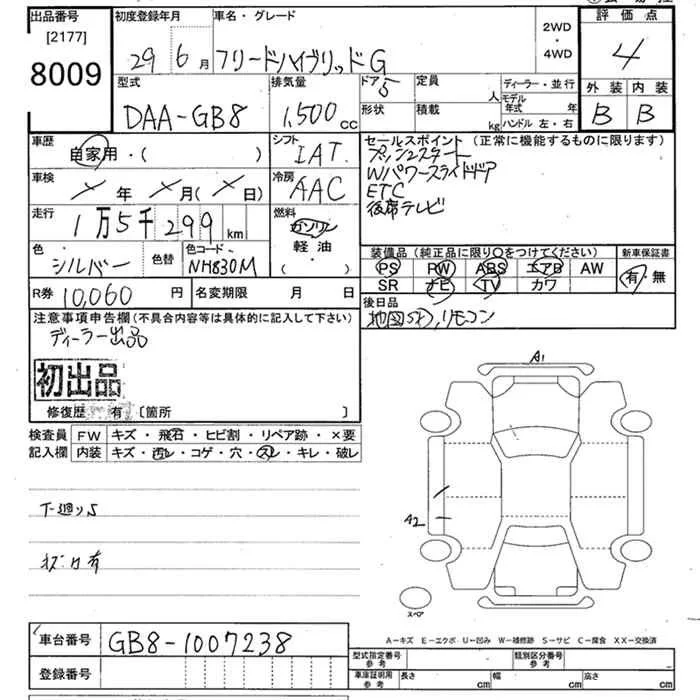 出品番号
[2177]
8009
初度登録年月
29 6月
車名・グレード
フリードハイブリッドG
2WD
・
4WD
評価点
4
外装 内装
B B
型式
DAA-GB8
排気量
1,500cc
ドア 5
形状
定員
人
積載
kg
ディーラー・並行
モデル年式 年
ハンドル 左・右
車歴
自家用・( )
シフト
IAT
車検
年 月( 日)
冷房
AAC
走行
1万5千299km
燃料
ガソリン
軽油
・
( )
色
シルバー
色替
色コード
NH830M
R券 10,060円
名変期限 月 日
セールスポイント(正常に機能するものに限ります)
プッシュスタート
Wパワースライドドア
ETC
後席テレビ
装備品(純正品に限り○をつけてください)
PS PW ABS エアB AW
SR ナビ TV カワ
新車保証書
有 無
後日品
リモコン
注意事項申告欄(不具合内容等は具体的に記入して下さい)
ディーラー出品
初出品
修復歴 有 〔箇所 〕
検査員記入欄
FW キズ・飛石・ヒビ割・リペア跡・×要
内装 キズ・汚レ・コゲ・穴・スレ・キレ・破レ
下廻りS
キズ凹有
A1
A2
スペア
A－キズ E－エクボ U－凹み W－補修跡 S－サビ C－腐食 XX－交換済
車台番号 GB8-1007238
登録番号
型式指定番号
参考
類別区分番号
参考
車庫証明用
参考
長さ cm
幅 cm
高さ cm